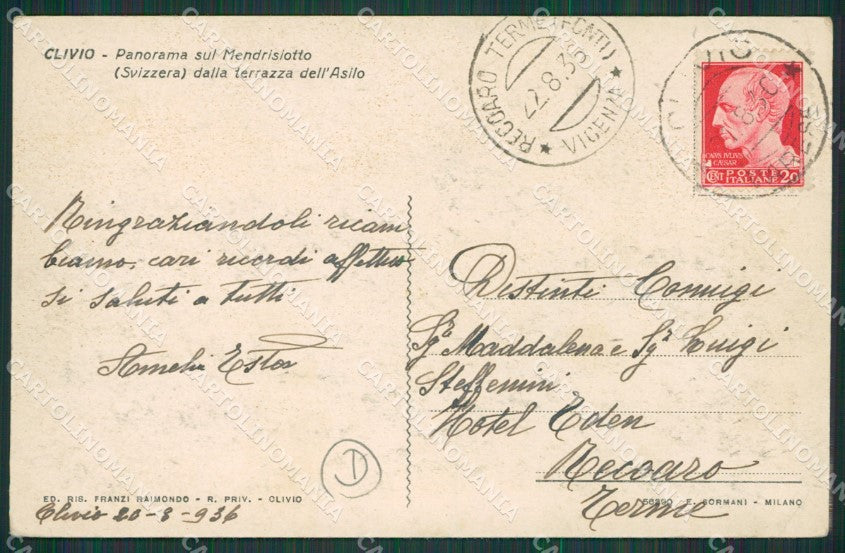 CLIVIO - Panorama sul Mendrisiotto
(Svizzera) dalla terrazza dell'Asilo
RECOARO TERME (FONTI)
22.8.36
★ VICENZA ★
CAIVS IVLIVS
CAESAR
CENT POSTE ITALIANE 20
Ringraziandoli ricam
biamo, cari ricordi affettuo
si saluti a tutti
Amelia Ester
Distinti Coniugi
Sgra Maddalena e Sgr Luigi
Steffenini
Hotel Eden
Recoaro
Terme
D
ED. RIS. FRANZI RAIMONDO - R. PRIV. - CLIVIO
Clivio 20-8-936
E. SORMANI - MILANO
CARTOLINOMANIA